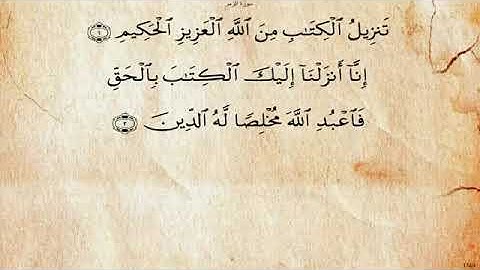 سورة الزمر
تَنزِيلُ ٱلْكِتَٰبِ مِنَ ٱللَّهِ ٱلْعَزِيزِ ٱلْحَكِيمِ ١
إِنَّآ أَنزَلْنَآ إِلَيْكَ ٱلْكِتَٰبَ بِٱلْحَقِّ
فَٱعْبُدِ ٱللَّهَ مُخْلِصًا لَّهُ ٱلدِّينَ ٢